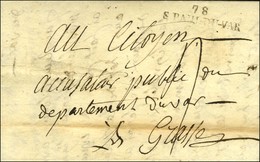 78
S PAUL-DU-VAR
au Citoyen
accusateur public du
departement du var
à Grasse